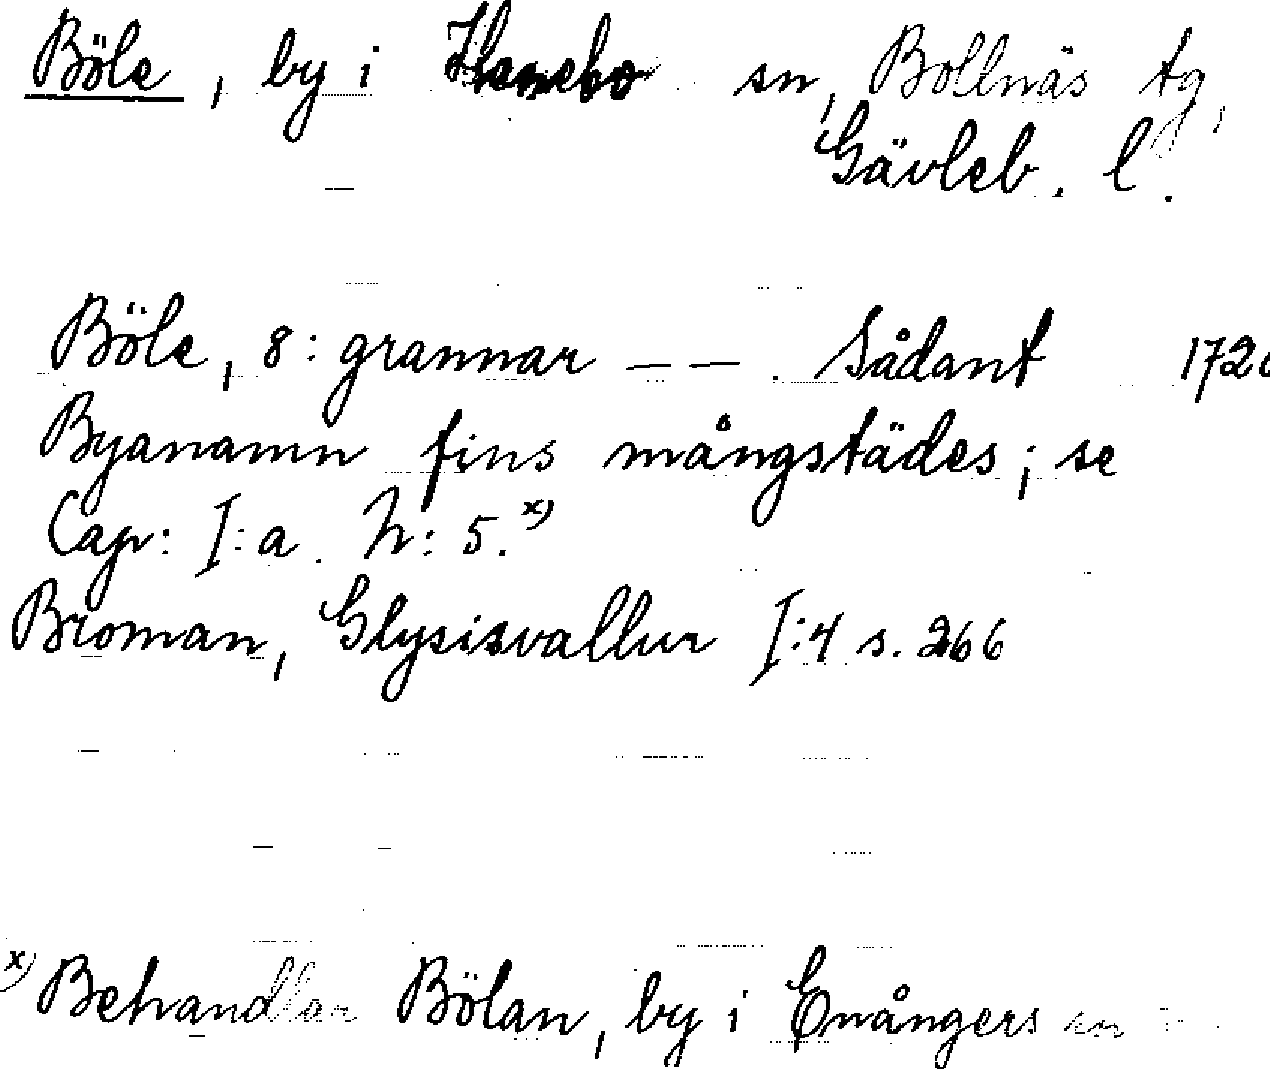 Böle, by i Hanebo sn, Bollnäs tg,
Gävleb. l.
Böle, 8: grannar — — . Sådant 172
Byanamn fins mångstädes; se
Cap: I: a. N: 5. x)
Broman, Glysisvallur I:4 s. 266
x) Behandlar Bölan, by i Enångers sn